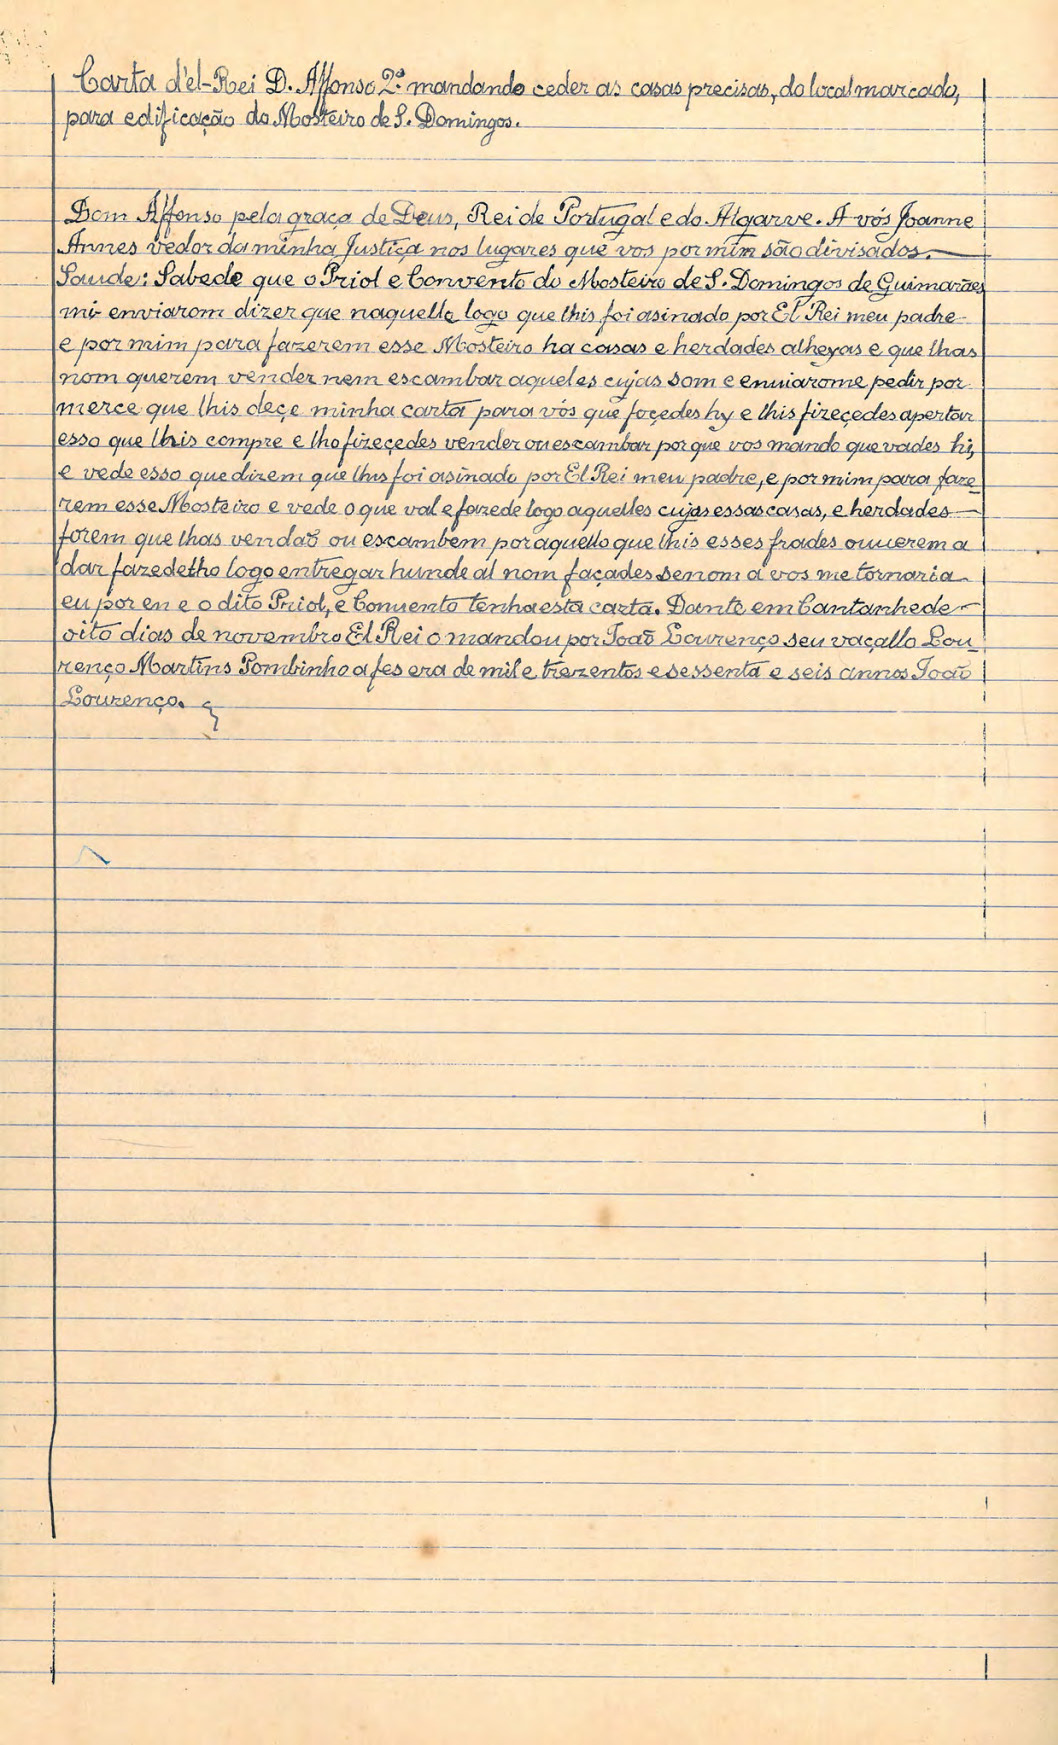 Carta d'el-Rei D. Affonso 2º mandando ceder as casas precisas, do local marcado,
para edificação do Mosteiro de S. Domingos.
Dom Affonso pela graça de Deus, Rei de Portugal e do Algarve. A vós Joanne
Annes vedor da minha Justiça nos lugares que vos por mim são divisados.
Saude: Sabede que o Priol e Convento do Mosteiro de S. Domingos de Guimarães
mi enviarom dizer que naquelle logo que lhis foi asinado por El Rei meu padre
e por mim para fazerem esse Mosteiro ha casas e herdades alheyas e que lhas
nom querem vender nem escambar aqueles cujas som e enuiarome pedir por
merce que lhis deçe minha carta para vós que foçedes hy e lhis fizeçedes apertar
esso que lhis compre e lho fizeçedes vender ou escambar por que vos mando que vades hi,
e vede esso que dizem que lhis foi asinado por El Rei meu padre, e por mim para faze-
rem esse Mosteiro e vede o que val e fazede logo aquelles cujas essas casas, e herdades
forem que lhas vendaõ ou escambem por aquello que lhis esses frades ouuerem a
dar fazedelho logo entregar hunde al nom façades senom a vos me tornaria
eu por en e o dito Priol, e Conuento tenha esta carta. Dante em Cantanhede
oito dias de novembro El Rei o mandou por Joaõ Lourenço seu vaçallo Lou-
renço Martins Pombinho a fes era de mil e trezentos e sessenta e seis annos Joaõ
Lourenço.